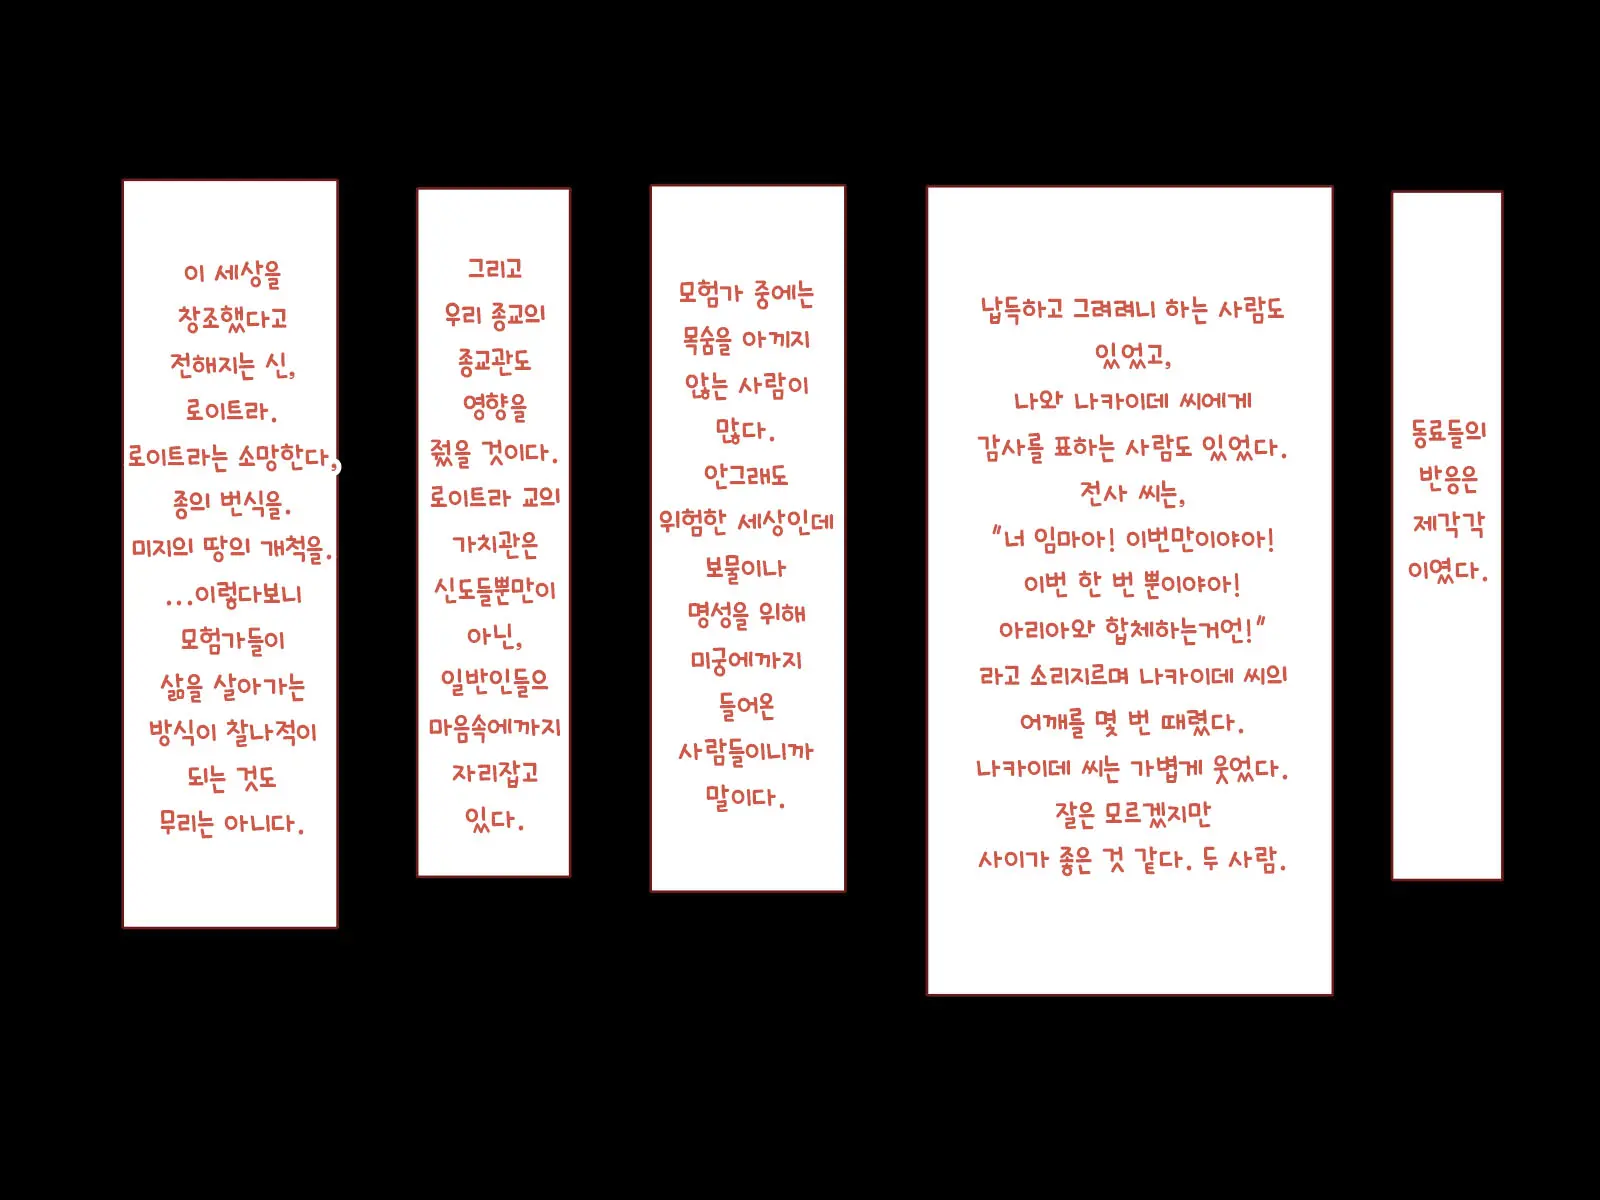 동료들의
반응은
제각각
이였다.
납득하고 그려려니 하는 사람도
있었고,
나와 나카이데 씨에게
감사를 표하는 사람도 있었다.
전사 씨는,
"너 임마아! 이번만이야아!
이번 한 번 뿐이야아!
아리아와 합체하는거언!"
라고 소리지르며 나카이데 씨의
어깨를 몇 번 때렸다.
나카이데 씨는 가볍게 웃었다.
잘은 모르겠지만
사이가 좋은 것 같다. 두 사람.
모험가 중에는
목숨을 아끼지
않는 사람이
많다.
안그래도
위험한 세상인데
보물이나
명성을 위해
미궁에까지
들어온
사람들이니까
말이다.
그리고
우리 종교의
종교관도
영향을
줬을 것이다.
로이트라 교의
가치관은
신도들뿐만이
아닌,
일반인들으
마음속에까지
자리잡고
있다.
이 세상을
창조했다고
전해지는 신,
로이트라.
로이트라는 소망한다,
종의 번식을.
미지의 땅의 개척을.
...이렇다보니
모험가들이
삶을 살아가는
방식이 찰나적이
되는 것도
무리는 아니다.